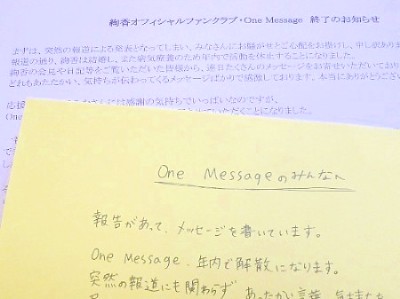 絢香オフィシャルファンクラブ・One Message 終了のお知らせ
まずは、突然の報道による発表となってしまい、みなさんにお騒がせとご心配をお掛けし、申し訳あり
報道の通り、絢香は結婚し、また病気療養のため年内で活動を休止することになりました。
絢香の会見や日記等をご覧いただいた皆様から、連日たくさんのメッセージをお寄せいただいており
どれもあたたかい、気持ちが伝わってくるメッセージばかりで感激しております。本当にありがとうござい
応援
には感謝の気持ちでいっぱいなのですが、
One
になりました。
One Messageのみんなへ
報告があって、メッセージを書いています。
One Message、年内で解散になります。
突然の報道にも関わらず あったかい言葉、